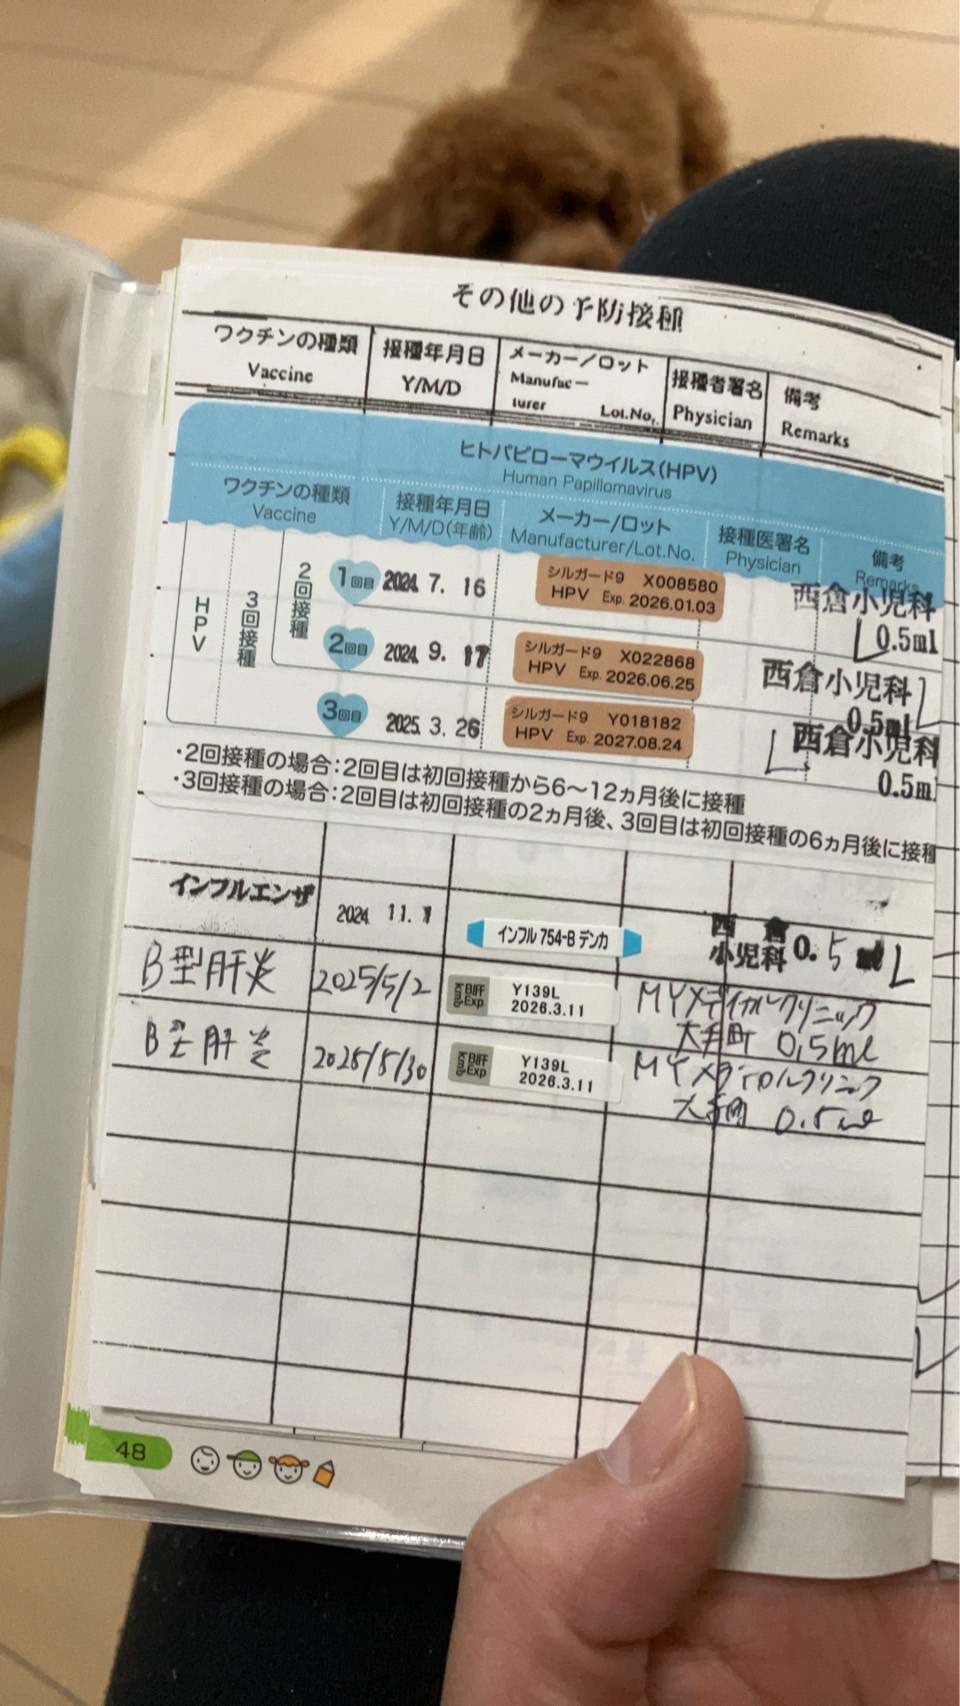 その他の予防接種
ワクチンの種類 接種年月日 メーカー/ロット 接種者署名 備考
Vaccine Y/M/D Manufac- turer Lot.No. Physician Remarks
ヒトパピローマウイルス(HPV)
Human Papillomavirus
ワクチンの種類 接種年月日 メーカー/ロット 接種医署名 備考
Vaccine Y/M/D(年齢) Manufacturer/Lot.No. Physician Remarks
HPV
3回接種
2回接種
1回目 2024. 7. 16 シルガード9 X008580
HPV Exp. 2026.01.03
西倉小児科
0.5ml
2回目 2024. 9. 17 シルガード9 X022868
HPV Exp. 2026.06.25
西倉小児科
0.5ml
3回目 2025. 3. 26 シルガード9 Y018182
HPV Exp. 2027.08.24
西倉小児科
0.5m
・2回接種の場合:2回目は初回接種から6〜12ヵ月後に接種
・3回接種の場合:2回目は初回接種の2ヵ月後、3回目は初回接種の6ヵ月後に接種
インフルエンザ 2024. 11. インフル 754-B デンカ 西倉
小児科 0.5
B型肝炎 2025/5/2 B肝 kmb Exp Y139L
2026.3.11
MYメディカルクリニック
大手町 0.5ml
B型肝炎 2025/5/30 B肝 kmb Exp Y139L
2026.3.11
MYメディカルクリニック
大手町 0.5ml
48